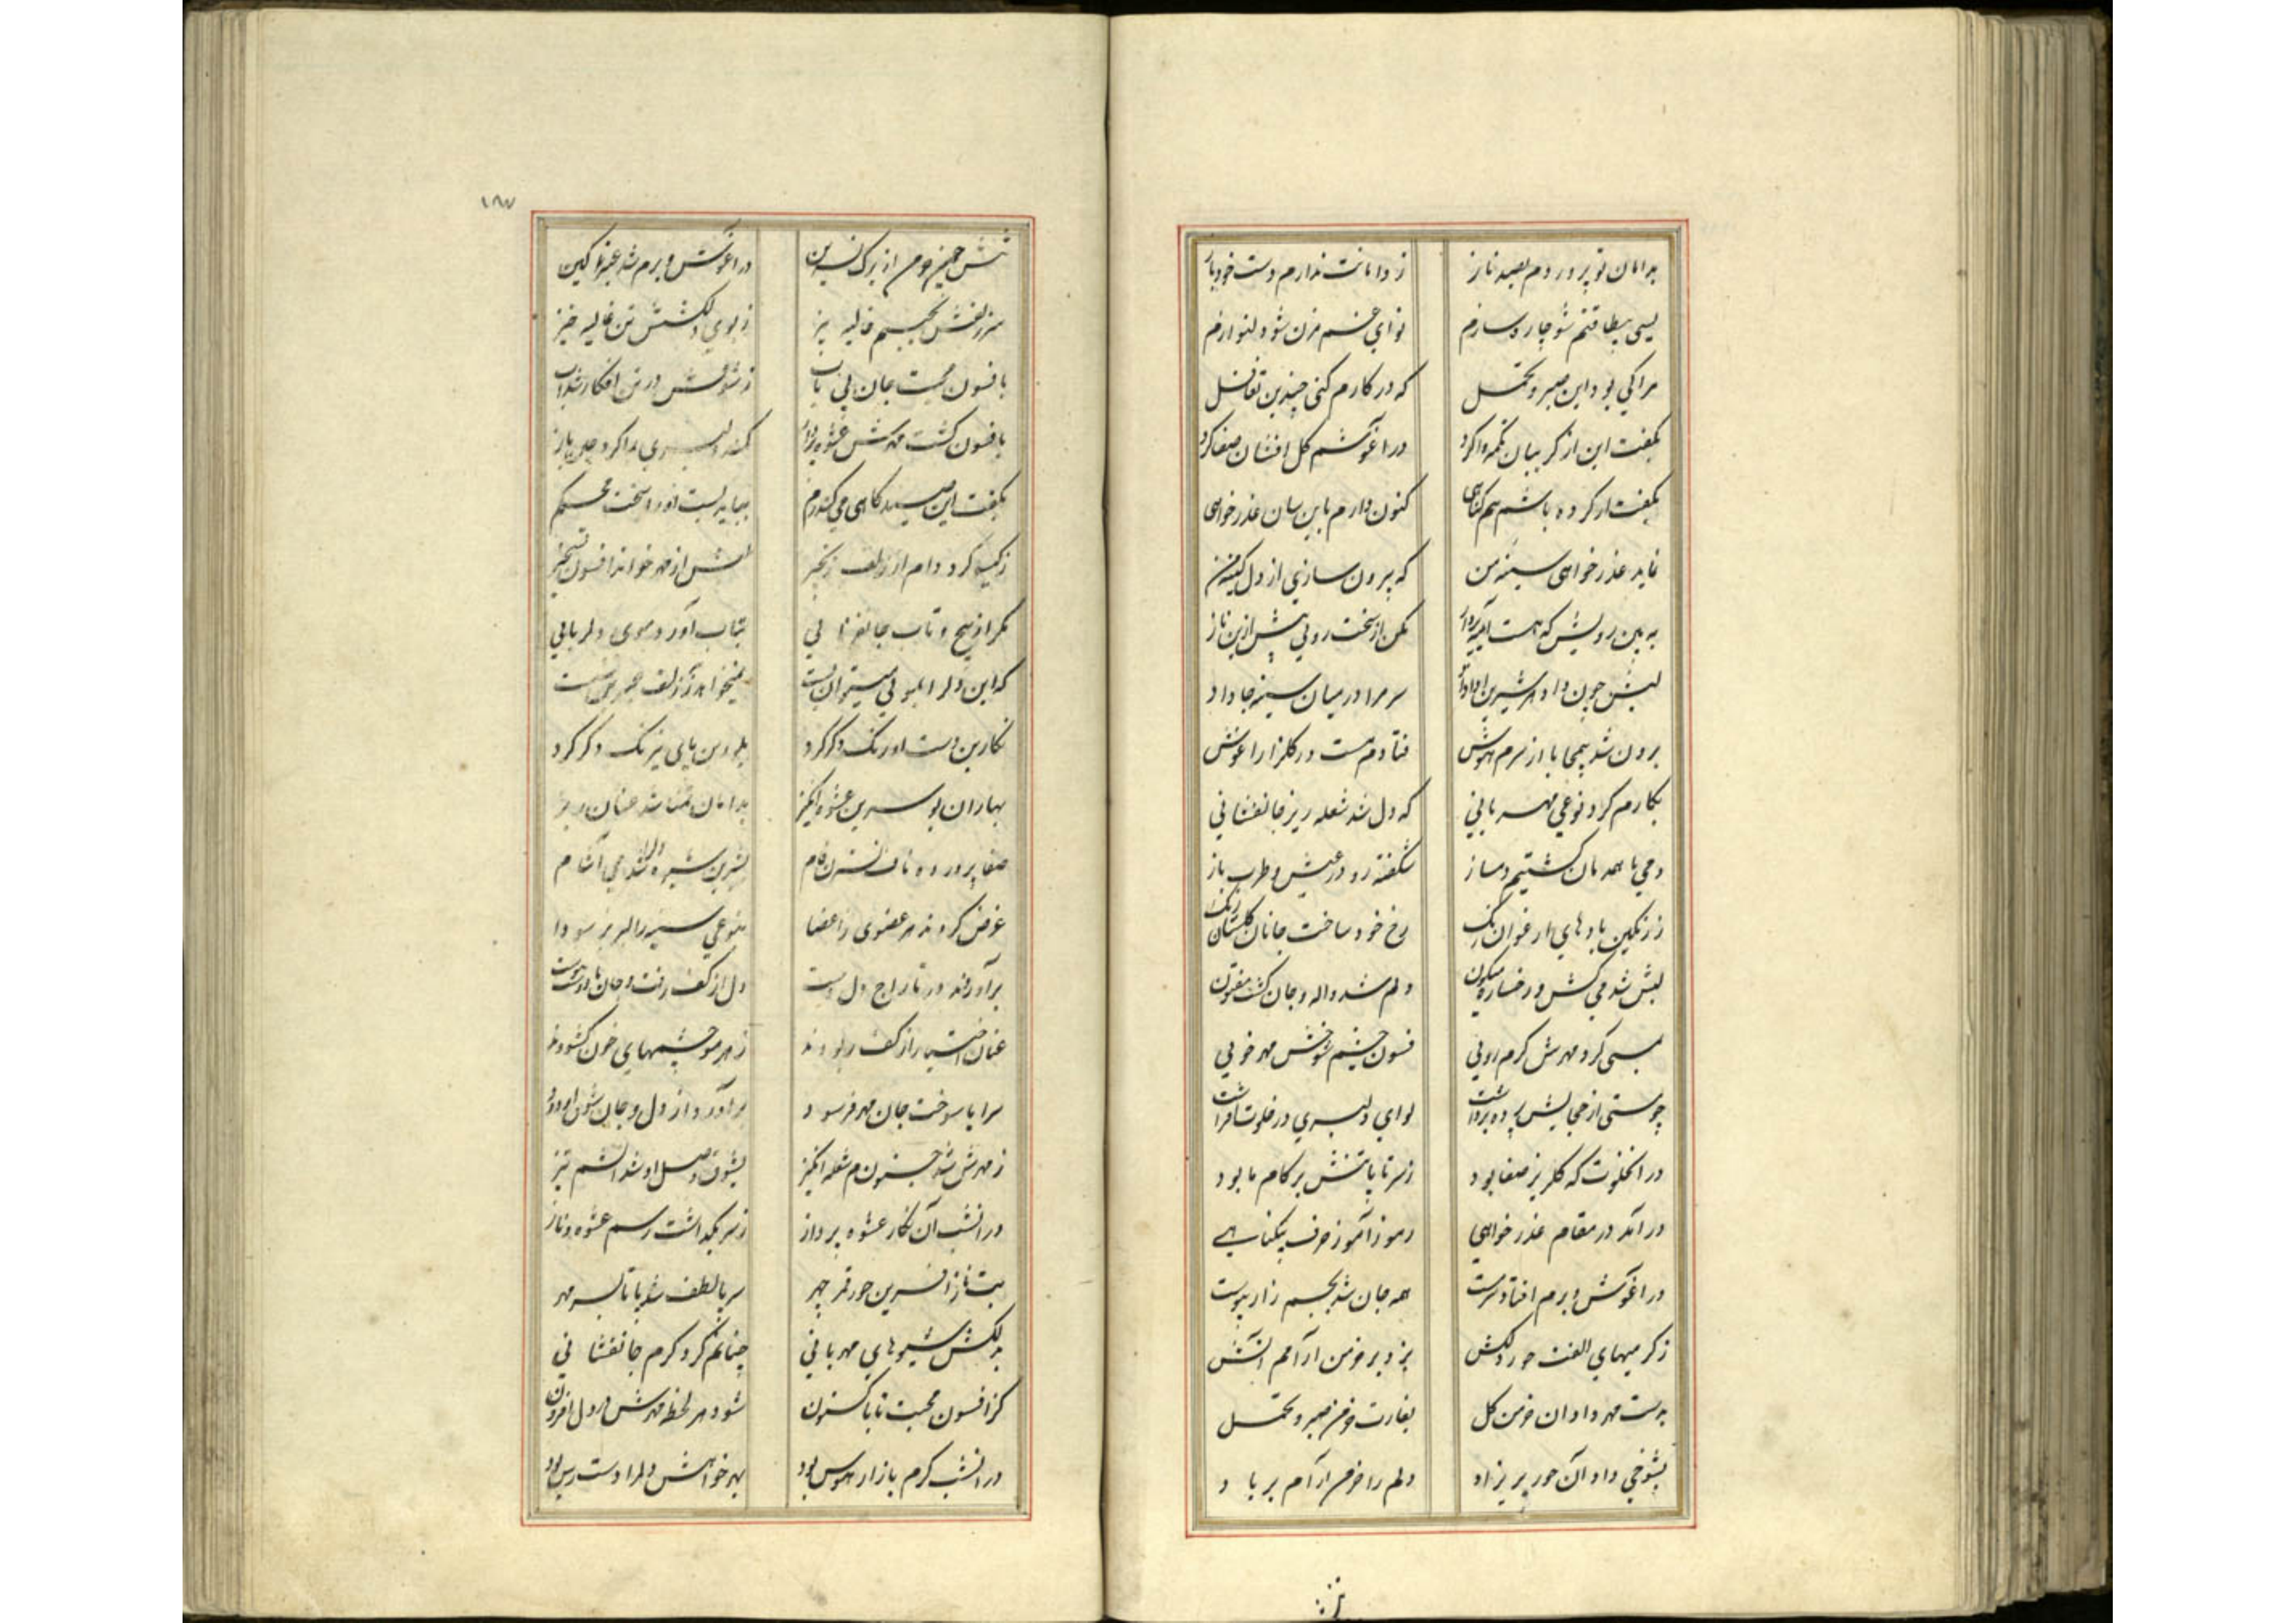 بدامان تو پروردم بصد ناز ز دامانت ندارم دست خود باز
بسی بیطاقتم شو چاره سازم نوای غم مزن شو دلنوازم
مرا کی بود این صبر و تحمل که در کارم کنی چندین تغافل
بگفت این از گریبان تکمه واکرد در آغوشم گل افشان صفا کرد
بگفت ار کرده باشم هم گناهی کنون دارم باین سان عذرخواهی
نماید عذرخواهی سینه من که بیرون سازی از دل کینه من
به بین رویش که هست آیینه مکن از سخت رویی بیش ازین ناز
لبش چون داد سر مرا در میان سینه جا داد
برون شد از سرم هوش فتادم مست در گلزار آغوش
بکارم کرد نوعی مهربانی که دل شد شعله ریز جانفشانی
دمی با همدمان گشتیم دمساز شکفته رو در عیش و طرب باز
ز رنگین بادهای ارغوان رنگ رخ خود ساخت جانان گلستان رنگ
لبش شد می کش و رخساره میگون دلم شد واله و جان گشت مفتون
بسی کرد مهرش گرم رویی فسون چشم شوخش مهر خویی
چو مستی از حجابش پرده برداشت لوای دلبری در خلوت افراشت
در آن خلوت که گلریز صفا بود ز سر تا پا تنش بر کام ما بود
در آمد در مقام عذرخواهی رموزآموز حرف بیگناهی
در آغوش و برم افتاد سرمست همه جان شد بجسم زار پیوست
ز گرمیهای الفت حور دلکش بزد بر خرمن آرامم آتش
بدست مهر داد آن خرمن گل بغارت خرمن صبر و تحمل
بشوخی داد آن حور پریزاد دلم را خرمن آرام بر باد
تنش
۱۸۷
تنش چون خرمن از برگ نسرین در آغوش و برم شد عنبرآگین
سر زلفش بجیبم غالیه بیز ز بوی دلکشش تن غالیه خیز
بافسون محبت جان بی تاب ز شوقش در تن افکار شد آب
بافسون گشت مهرش عشوه پرداز کمند دلبری را کرد باز
بگفت این صید گاهی می کند رم بباید بست او را سخت محکم
ز گیسو کرد دام از زلف زنجیر لبش از مهر خواند افسون تسخیر
مگر از پیچ و تاب جانفزایی بتاب آورد موی دلربایی
که این دل را بمویی میتوان بست نمیخواهد ز زلف
نگارین دست او رنگ دگر کرد بلورین پای نیرنگ دگر کرد
بهاران بو سرین عشوه انگیز بدامان تمنا شد
صفا پرورده ناف نسترن فام بشیرین شیره شد می آشام
غرض کردند هر عضوی ز اعضا بنوعی سینه را لبریز سودا
برآوردند در تاراج دل دست دل از کف رفت و جان
عنان اختیار از کف ربودند ز هر مو چشمهای خون گشودند
سراپا سوخت جان مهر فرسود برآورد از دل و جان
ز مهرش شد جنونم شعله انگیز بشوق وصل او شد آتشم تیز
در آنشب آن نگار عشوه پرداز ز سر بگذاشت رسم عشوه و ناز
بت نازآفرین حور قمر چهر سرپا لطف شد پا تا بسر مهر
بدلکش شیوهای مهربانی چنانم کرد گرم جانفشانی
کز افسون محبت تا باکنون شود هر لحظه مهرش در دل افزون
در آنشب گرم بازار هوس بود بهر خواهش دلم را دسترس بود